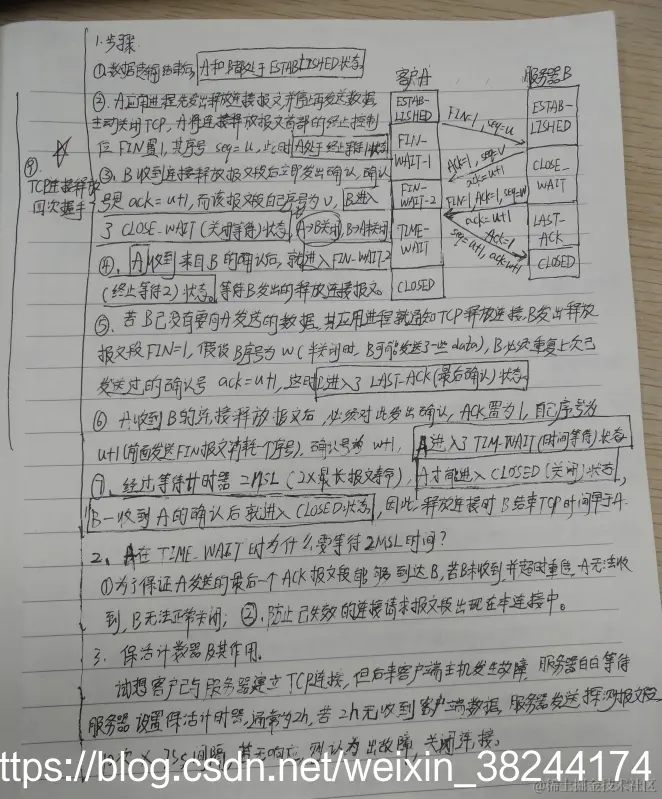 1.步骤
①数据传输结束后,A和B都处于ESTABLISHED状态.
②.A应用进程先发出释放连接报文并停止再发送数据,
主动关闭TCP,A将连接释放报文首部的终止控制
位FIN置1,其序号seq=u,此时A处于终止等待1状态
③.B收到连接释放报文段后立即发出确认,确认
号是ack=u+1,而该报文段自己序号为v,B进入
了CLOSE-WAIT(关闭等待)状态,A→B关闭,B→A未关
④.A收到来自B的确认后,就进入FIN-WAIT-2
(终止等待2)状态。等待B发出的释放连接报文。
⑨
TCP连接释放
四次握手
客户A
服务器B
ESTAB-
LISHED
FIN-
WAIT-1
FIN-
WAIT-2
TIME-
WAIT
CLOSED
FIN=1, seq=u
ACK=1, seq=v
ack=u+1
FIN=1,ACK=1,seq=w
ack=u+1
ACK=1
seq=u+1, ack=w+1
ESTAB-
LISHED
CLOSE-
WAIT
LAST-
ACK
CLOSED
⑤.若B已没有要向A发送的数据,其应用进程就通知TCP释放连接.B发出释放
报文段FIN=1,假设B序号为w(半关闭时,B可能发送了一些data),B必须重复上次已
发送过的确认号ack=u+1,这时B进入了LAST-ACK(最后确认)状态.
⑥A收到B的连接释放报文后,必须对此发出确认,ACK置为1,自己序号为
u+1(前面发送FIN报文消耗一个序号),确认号为w+1,A进入了TIM-WAIT(时间等待)状态
⑦.经过等待计时器2MSL(2×最长报文寿命),A才可进入CLOSED(关闭)状态,
B一收到A的确认后就进入CLOSED状态,因此,释放连接时B结束TCP时间早于A.
2、A在TIME_WAIT时为什么要等待2MSL时间?
①为了保证A发送的最后一个ACK报文段能够到达B,若B未收到,并超时重传,A无法收
到,B无法正常关闭;②.防止已失效的连接请求报文段出现在本连接中。
3.保活计数器及其作用.
试想客户已与服务器建立TCP连接,但后来客户端主机发生故障,服务器白白等待
服务器设置保活计时器,通常为2h,若2h无收到客户端数据,服务器发送探测报文段
75s间隔,若无响应,则认为出故障,关闭连接。
ttps://blog.csdn.net/weixin_38244174
@稀土掘金技术社区